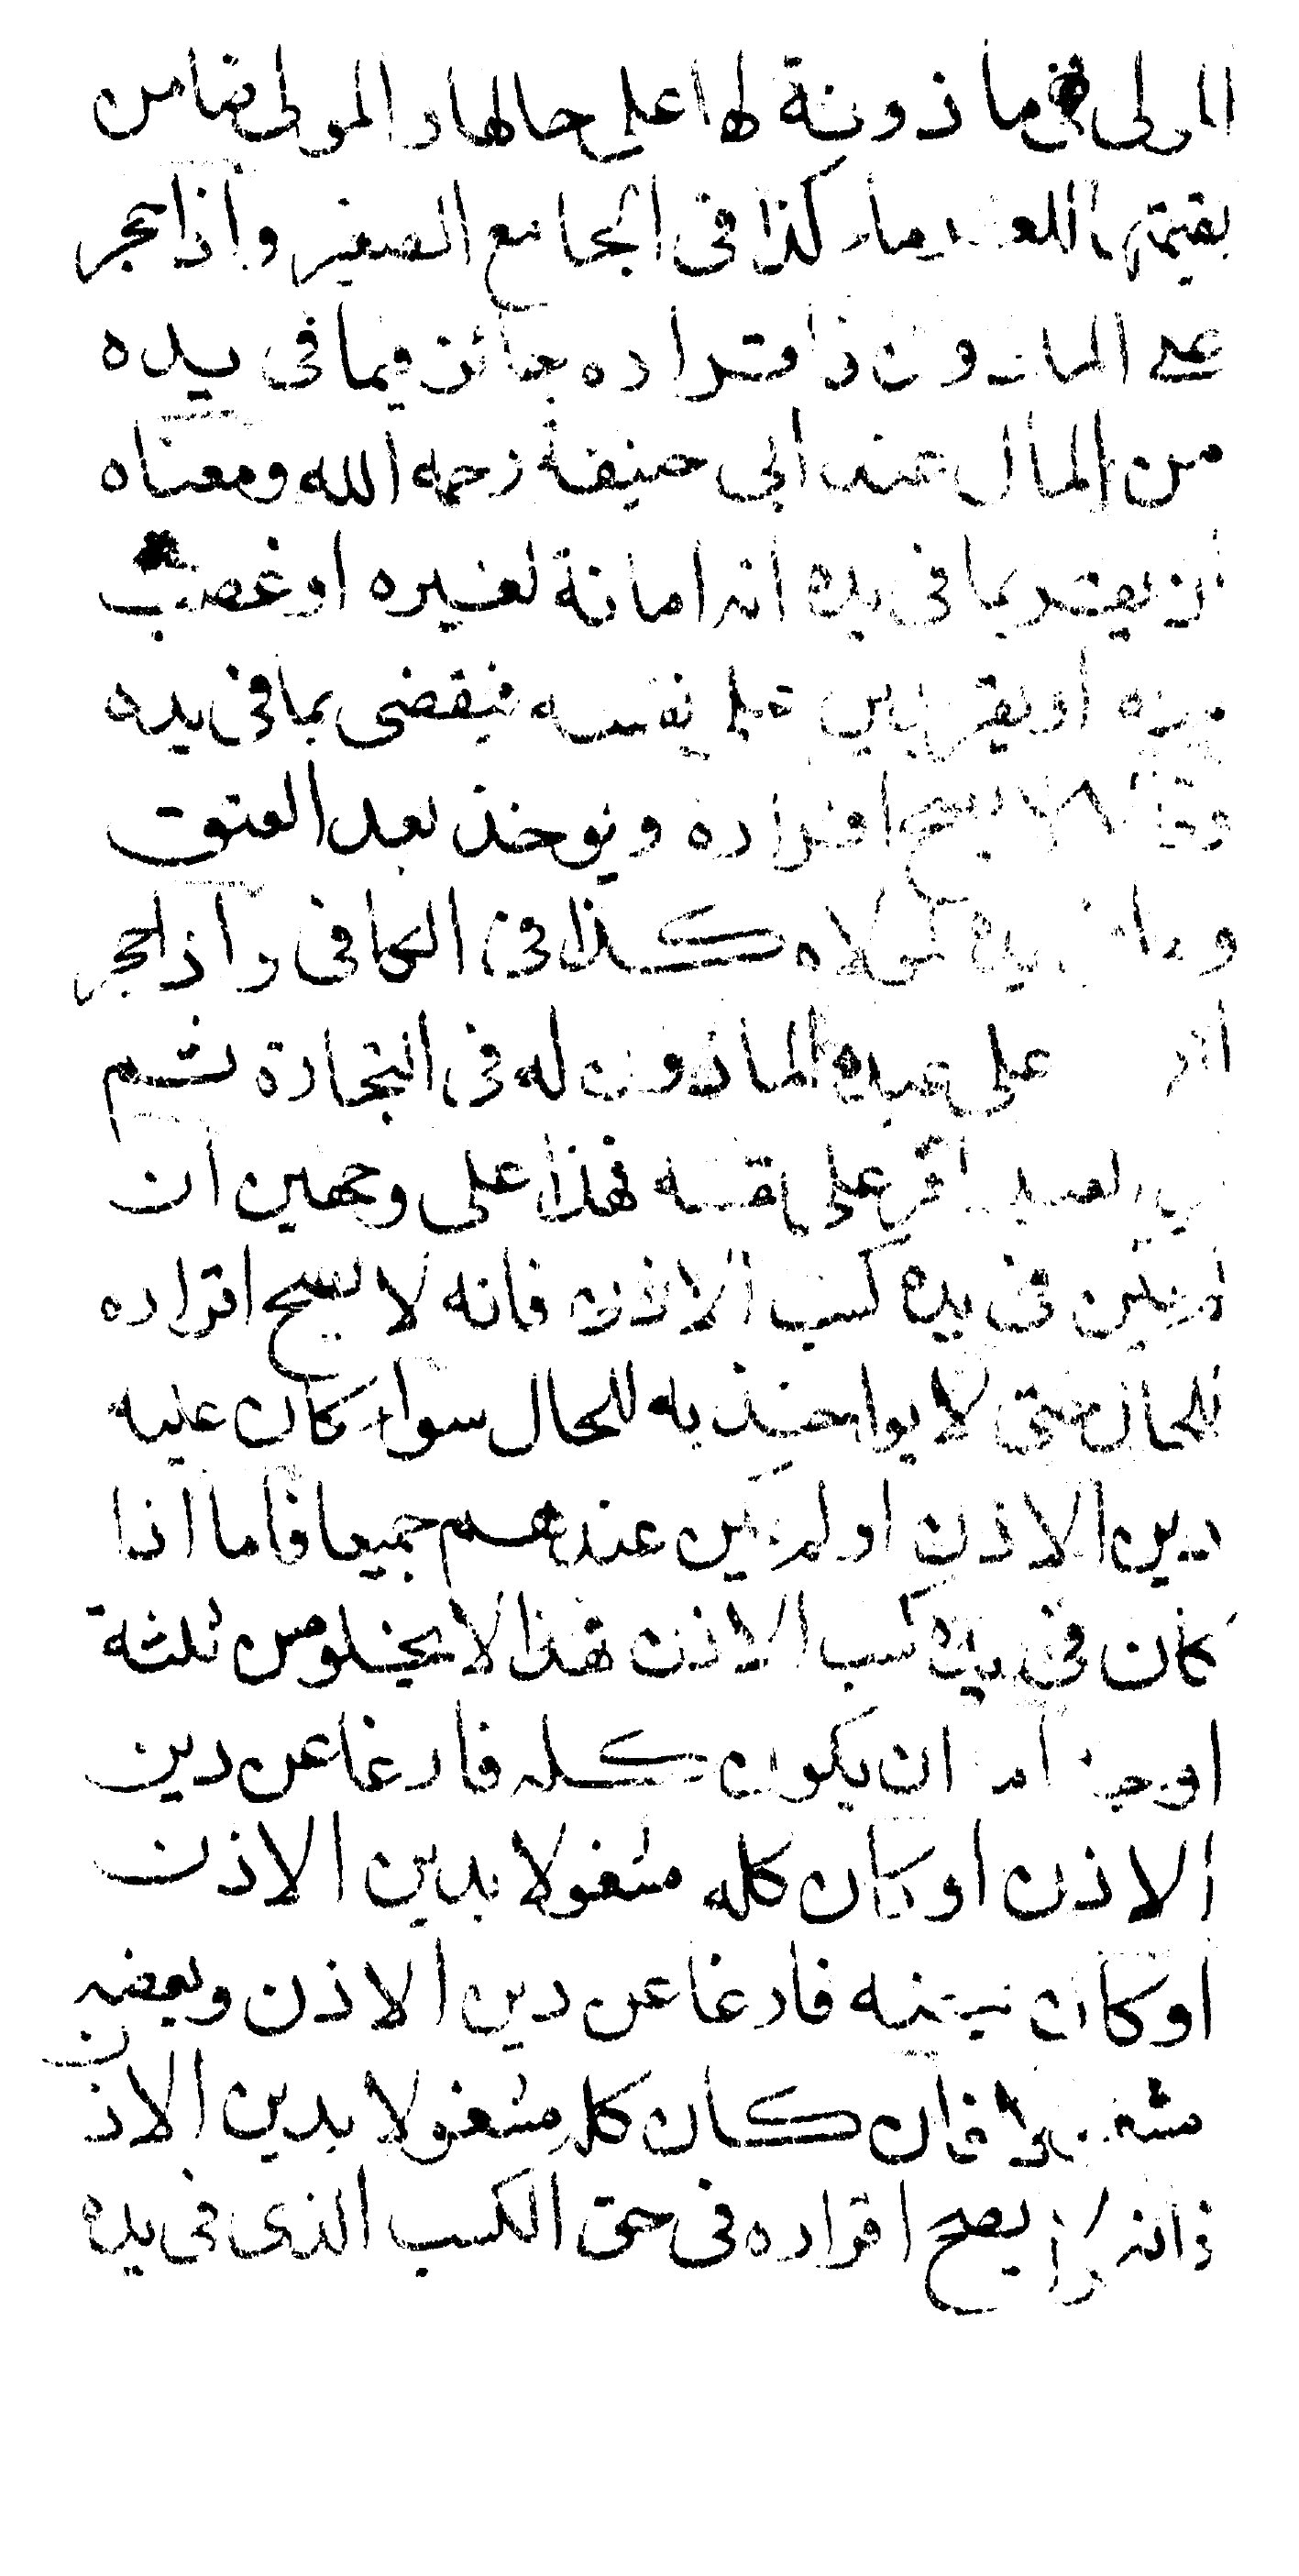 المولى فهى ماذونة لها على حالها والمولى ضامن
بقيمتها للغرماء كذا فى الجامع الصغير واذا حجر
على الماذون فاقراره جائز فيما فى يده
من المال عند ابى حنيفة رحمه الله ومعناه
ان يقر بما فى يده انه امانة لغيره او غصب
منه او يقر بدين على نفسه فيقضى بما فى يده
وقالا لا يصح اقراره ويوخذ بعد العتق
وما فى يده لمولاه كذا فى الكافى واذا حجر
على عبده الماذون له فى التجارة ثم
العبد اقر على نفسه فهذا على وجهين ان
لم يكن فى يده كسب الاذن فانه لا يصح اقراره
للحال حتى لا يواخذ به للحال سواء كان عليه
دين الاذن او لم يكن عندهم جميعا فاما اذا
كان فى يده كسب الاذن فهذا لا يخلو من ثلثة
اوجه اما ان يكون كله فارغا عن دين
الاذن او كان كله مشغولا بدين الاذن
او كان بعضه فارغا عن دين الاذن وبعضه
مشغولا فان كان كله مشغولا بدين الاذن
فانه لا يصح اقراره فى حق الكسب الذى فى يده